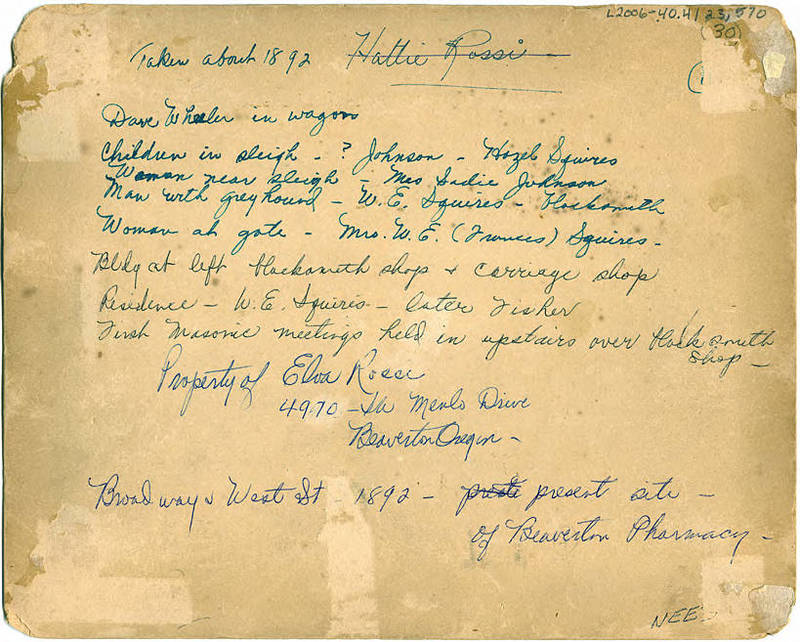 L2006-40.41 23,570
(30)
Taken about 1892 Hattie Rossi
Dave Wheeler in wagon
Children in sleigh - ? Johnson - Hazel Squires
Woman near sleigh - Mrs Sadie Johnson
Man with greyhound - W.E. Squires - blacksmith
Woman at gate - Mrs. W.E. (Frances) Squires -
Bldg at left blacksmith shop & carriage shop
Residence - W.E. Squires - later Fisher
First Masonic meetings held in upstairs over blacksmith
shop -
Property of Elva Rossi
4970 - Menlo Drive
Beaverton Oregon -
Broadway & West St - 1892 - present site -
of Beaverton Pharmacy -
NEE